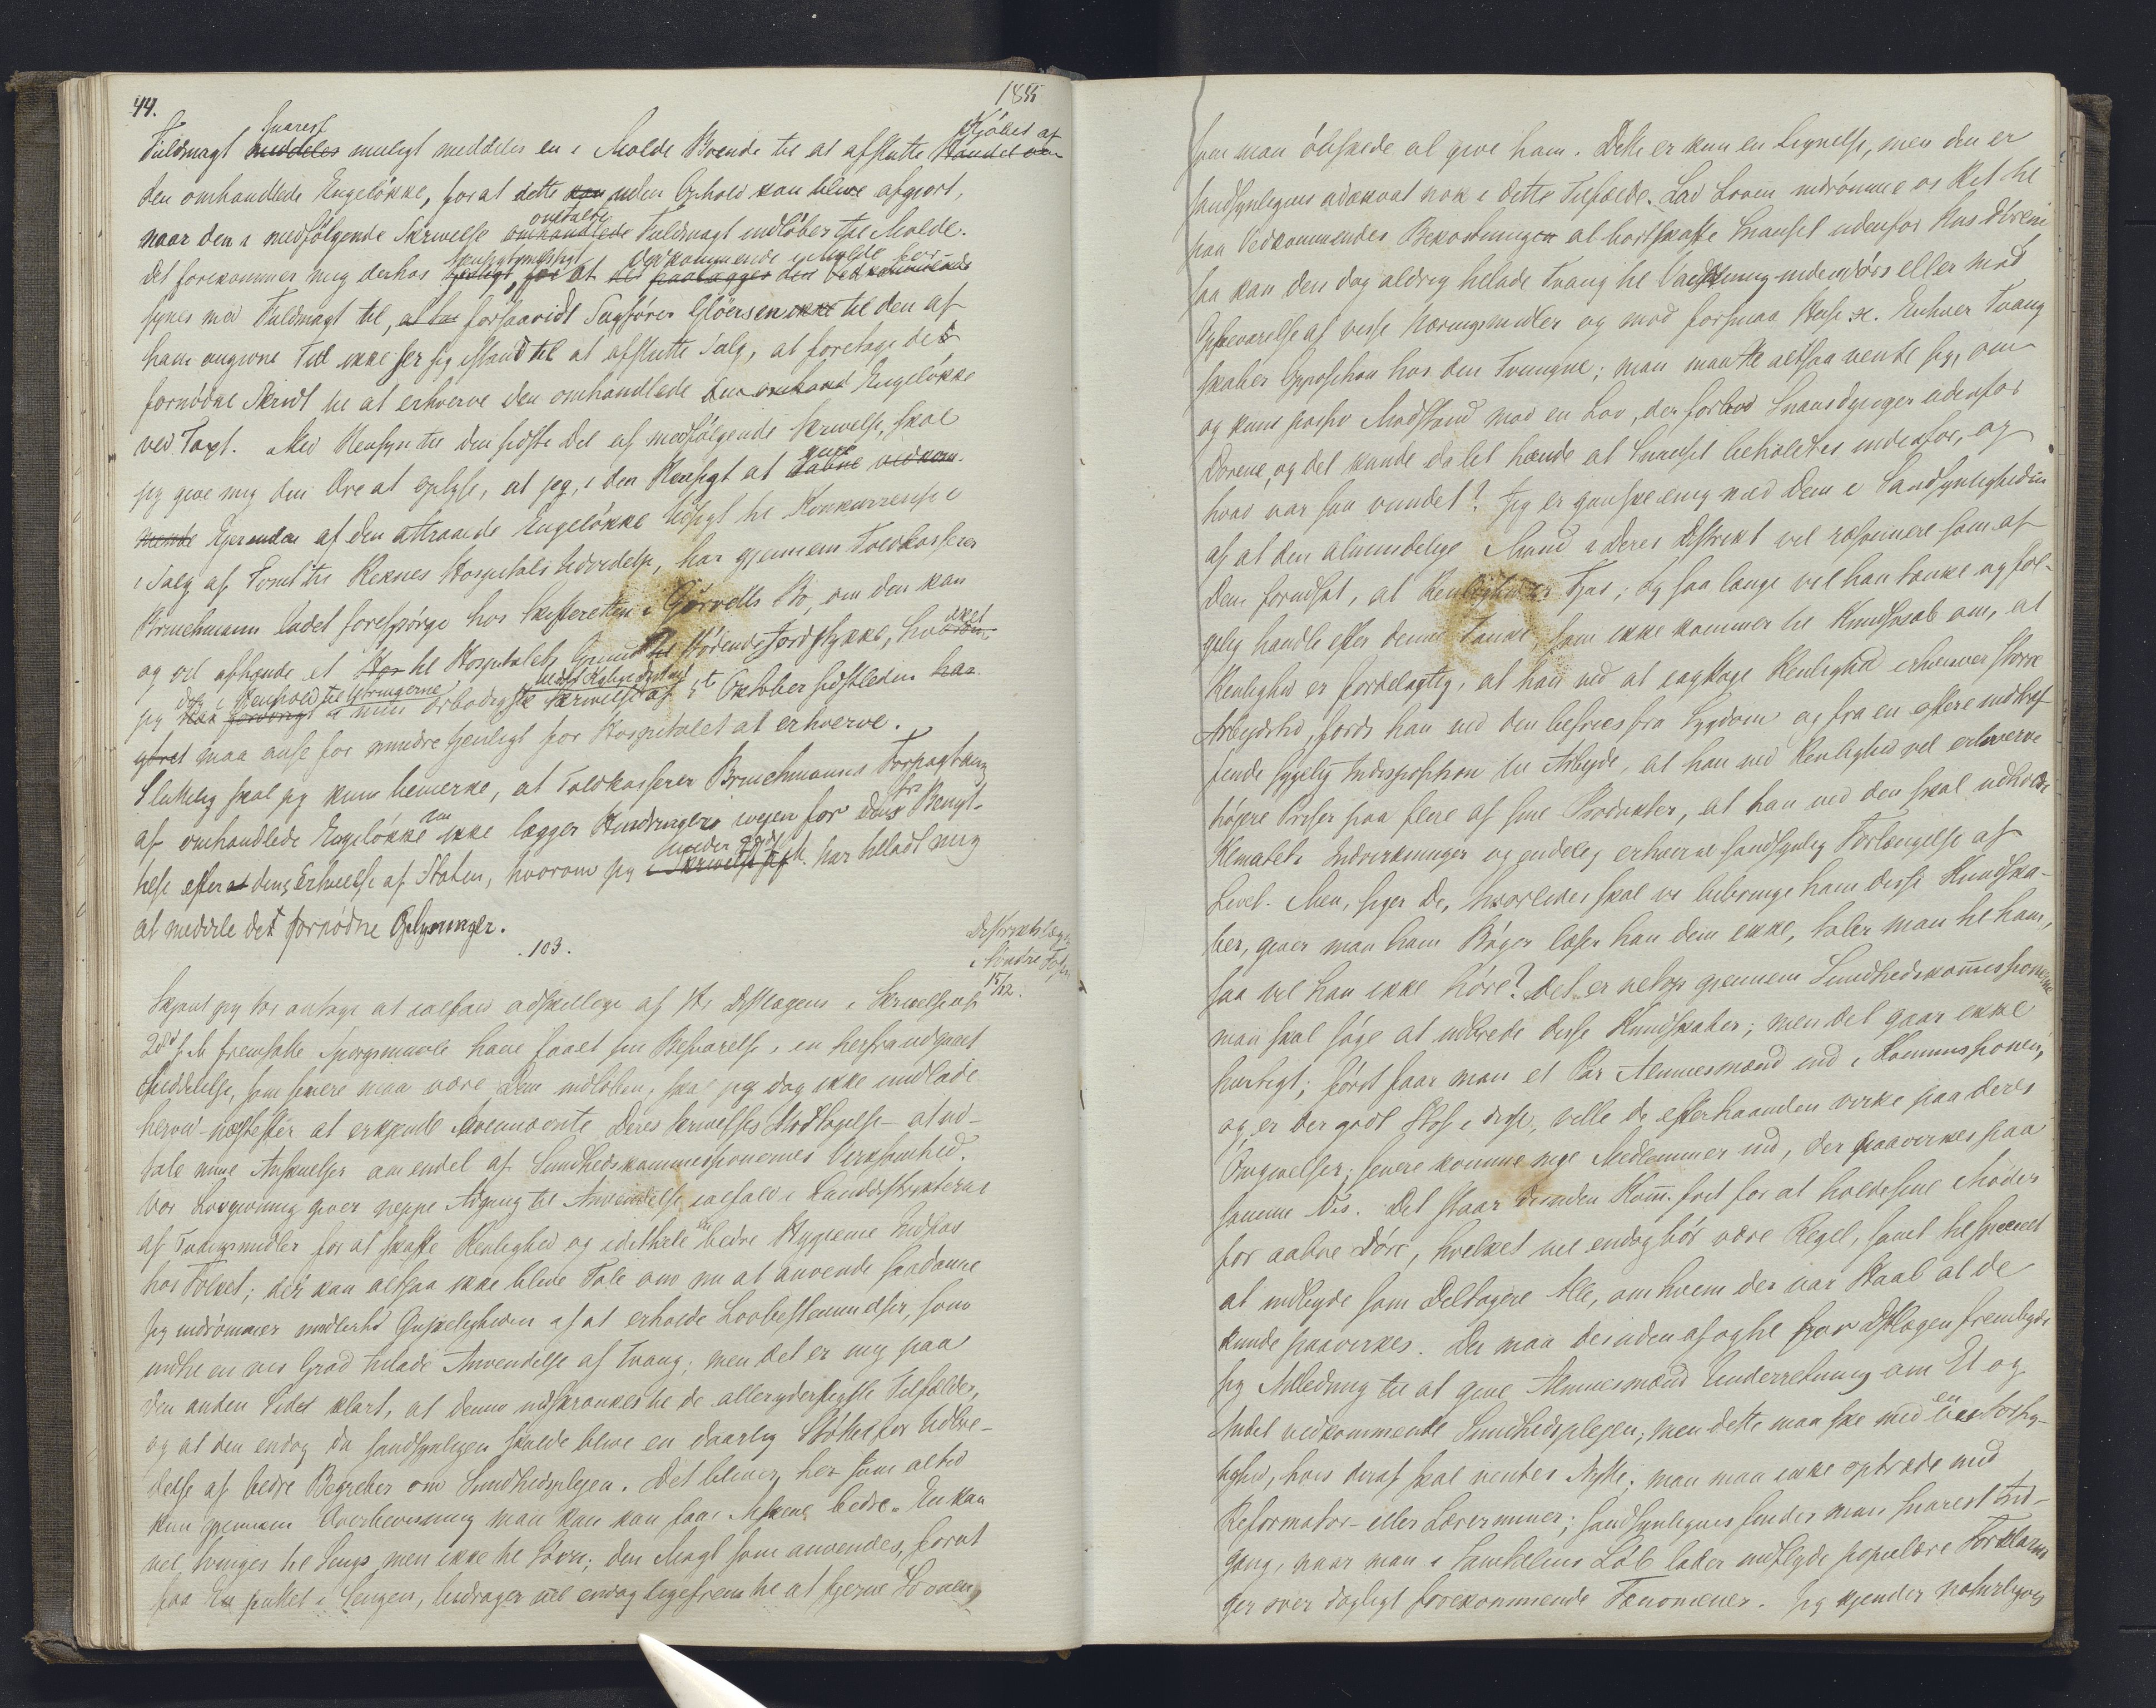 44.
1855
snarest Kjöbet af
Fuldmagt meddeles muligt meddeles en i Molde Boende til at afslutte Handel om
den omhandlede Engelökke, for at dette kan uden Ophold kan blive afgjort,
omtalte
naar den i medfölgende Skrivelse omhandlede Fuldmagt indlöber til Molde.
hensigtsmæssigt Vedkommende i Molde for-
Det forekommer mig derhos heldigt, for at det paalægges den Vedkommende
synes med Fuldmagt til, at han forsaavidt Sagförer Glöersen ikke til den af
ham angivne Tid ikke ser sig istand til at afslutte Salg, at foretage det
fornödne Skridt til at erhverve den omhandlede den omhand Engelökke
ved Taxt. Med Hensyn til den sidste Del af medfölgende Skrivelse, skal
give
jeg give mig den Ære at oplyse, at jeg, i den Hensigt at aabne vedkom-
mende Ejerinden af den attraaede Engelökke Udsigt til Konkurrence i
i Salg af Tomt til Reknes Hospitals Udvidelse, har gjennem Toldkasserer
Brinchmann ladet forespörge hos Skifteretten i Görvells Bo, om den kan
og vil afhænde et Hos til Hospitalets Grund til stödende Jordstykke, hvilket
dog i Henhold til Ytringerne
jeg har forövrigt i min ærbödigste Skrivelse af 5t Oktober sidstleden har
gjort maa anse for mindre tjenligt for Hospitalet at erhverve.
Sluttelig skal jeg kun bemerke, at Toldkasserer Brinchmanns Forpagtning
af omhandlede Engelökke ikke lægger Hindringer i vejen for dens Benyt-
telse efter at dens Erhvelse af Staten, hvorom jeg i Skrivelse har tilladt mig
at meddele det fornödne Oplysninger.
103.
Distriktslægen
i Söndre Fosen
15/12.
Skjönt jeg tör antage at ialfald adskillige af Hr Distlægens i Skrivelse af
28d f. M. fremsatte Spörgsmaale have faaet sin Besvarelse i en herfra udgaaet
Meddelelse, som senere maa være Dem indlöben, skal jeg dog ikke undlade
herved næstefter at erkjende Deres Skrivelses Modtagelse – at ud-
tale mine Anskuelser om endel af Sundhedskommissionernes Virksomhed.
Vor Lovgivning giver neppe Adgang til Anvendelse ialfald i Landdistrikterne
af Tvangsmidler for at skaffe Renlighed og idethele en bedre Hygieine Indpas
hos Folket; der kan altsaa ikke blive Tale om nu at anvende saadanne
Jeg indrömmer imidlertid Önskeligheden af at erholde Lovbestemmelser, som
indtil en vis Grad tillade Anvendelse af Tvang; men det er mig paa
den anden Side klart, at denne indskrænkes til de alleryderligste Tilfælde,
og at den endog da sandsynligvis skulde blive en daarlig Stötte for Udbre-
delse af bedre Begreber om Sundhedsplejen. Det bliver her som altid
kun gjennem Overbevisning man kan kan faae Mskene bedre. En kan
vel tvinges til Sengs men ikke til Sövn; den Magt som anvendes, forat
faa En puttet i Sengen, bidrager vel endog ligefrem til at fjerne Sövnen,
som man önskede at give ham. Dette er kun en Lignelse, men den er
sandsynligvis adækvat nok i dette Tilfælde. Lad Loven indrömme os Ret til
paa Vedkommendes Bekostningen at bortskaffe Snavset udenfor Hus Dören
saa kan den dog aldrig tillade Tvang til Vaskning indendörs eller mod
Opbevarelse af visse Næringsmidler og mod forsmaa Huse &c. Enhver Tvang
skaber Opposition hos den Tvungne; man maatte altsaa vente sig, om
og kun passiv Modstand mod en Lov, der forböd Snavsdynger udenfor
Dörene, og det kunde da let hænde at Snavset beholdtes indenfor, og
hvad var saa vundet? Jeg er ganske enig med Dem i Sandsynligheden
af at den almindelige Mand i Deres Distrikt vil ræsonnere som af
Dem forudsat, at Renlighed er Fjas; og saa længe vil han tænke og föl-
gelig handle efter denne Tanke, som ikke kommer til Kundskab om, at
Renlighed er fordelagtig, at han ved at iagttage Renlighed erhverver större
Arbejdstid, fordi han ved den befries fra Sygdom og fra en oftere indtræf
fende sygelig Indisposition til Arbejde, at han ved Renlighed vil erhverve
höjere Priser paa flere af sine Produkter, at han ved den skal udholde
Klimatets Indvirkninger og endelig erhverve sandsynlig Forlængelse af
Livet. Men, siger De, hvorledes skal vi bibringe ham disse Kundska-
ber, giver man ham Böger læser han dem ikke, taler man til ham,
saa vil han ikke höre? Det er netop gjennem Sundhedskommissionerne
man skal söge at udbrede disse Kundskaber; men det gaar ikke
hurtigt; först faar man et Par Almuesmænd ind i Kommissionen,
og er der godt Stof i disse, ville de efterhaanden virke paa deres
Omgivelser; senere komme nye Medlemmer ind, der paavirkes paa
samme Vis. Det staar desuden Komm. frit for at holde sine Möder
for aabne Döre, hvilket vel endog bör være Regel, samt til specielt
at indbyde som Deltagere Alle, om hvem der var Haab at de
kunde paavirkes. Der maa desuden af og til for Distlægen frembyde
sig Anledning til at give Almuesmænd Underretning om Et og
Andet vedkommende Sundhedsplejen; men dette maa ske med en vis Forsig-
tighed, hvis deraf skal ventes Nytte; man maa ikke optræde med
Reformator- eller Lærerminer; sandsynligvis finder man snarest Ind-
gang, naar man i Samtalens Löb lader indflyde populære Forklarin
ger over dagligt forekommende Fænomener. Jeg kjender naturligvis